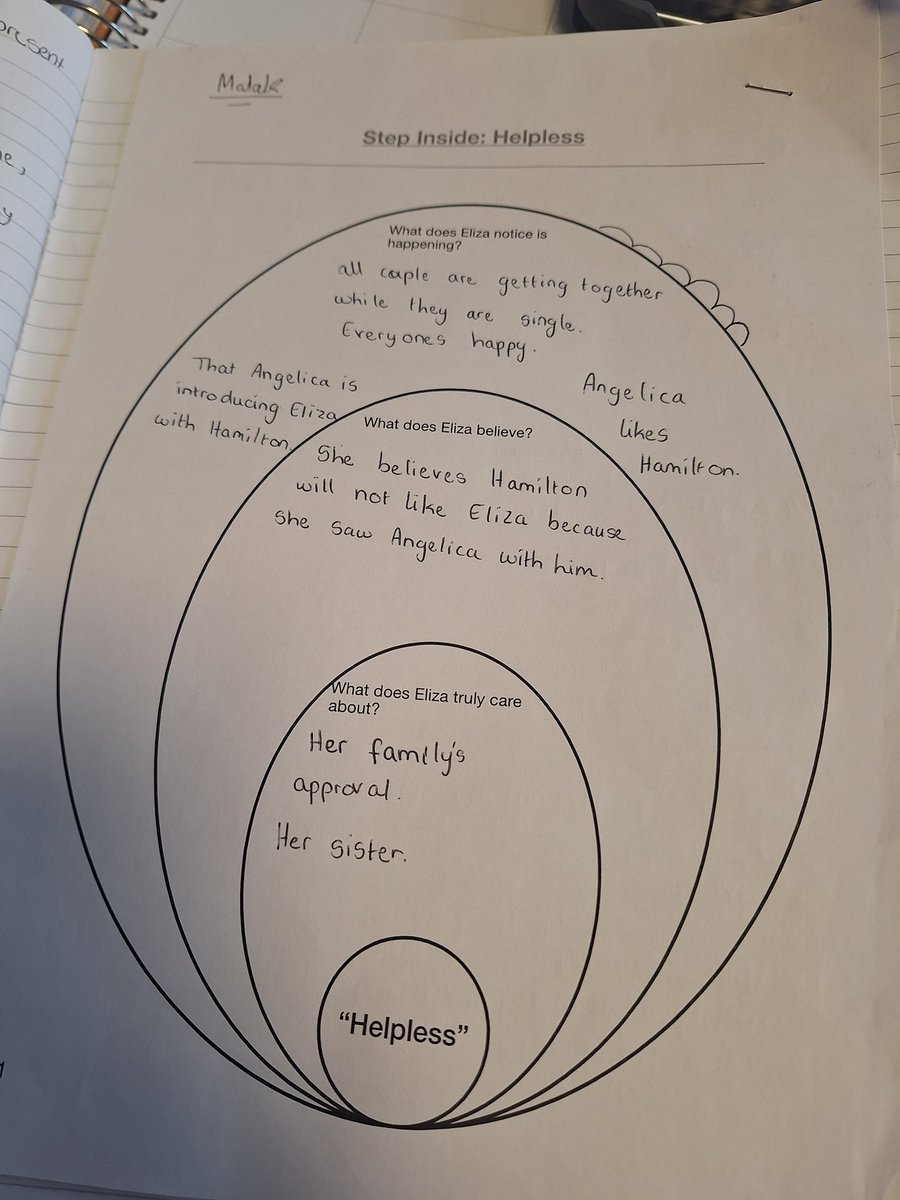 present
Malak
Step Inside: Helpless
What does Eliza notice is
happening?
all cauple are getting together
while they are single.
Everyones happy.
That Angelica is
introducing Eliza
with Hamilton.
Angelica
likes
Hamilton.
What does Eliza believe?
She believes Hamilton
will not like Eliza because
she saw Angelica with him.
What does Eliza truly care
about?
Her family's
approval.
Her sister.
"Helpless"